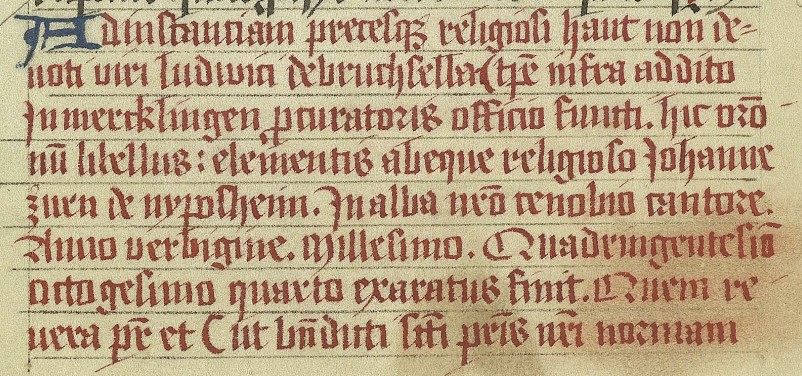 Ad instantiam precesqꝫ religiosi haut non de-
uoti viri ludwici de bruchsella (tꝑe infra addito
In mercklingen ꝓcuratoris officio functi. hic oro
nū libellus: elementis abeque religioso Johanne
zuen de nyposheim. In alba nrō cenobio cantore.
Anno verbigine. Millesimo. Quadringentesiō
octogesimo quarto exaratus finit. Quem re-
uera pꝛē et Cut bn̄dicti scti prīs nrī normam